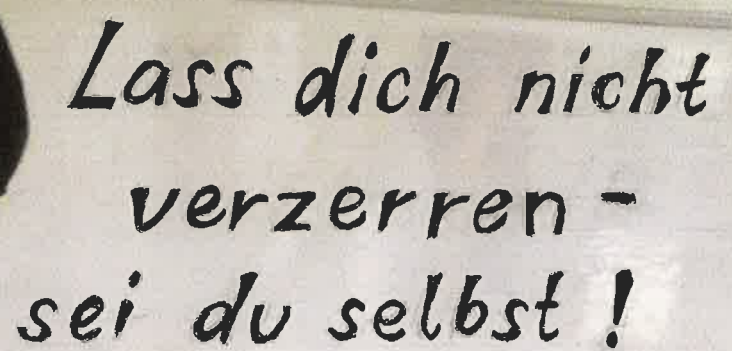 Lass dich nicht
verzerren -
sei du selbst !